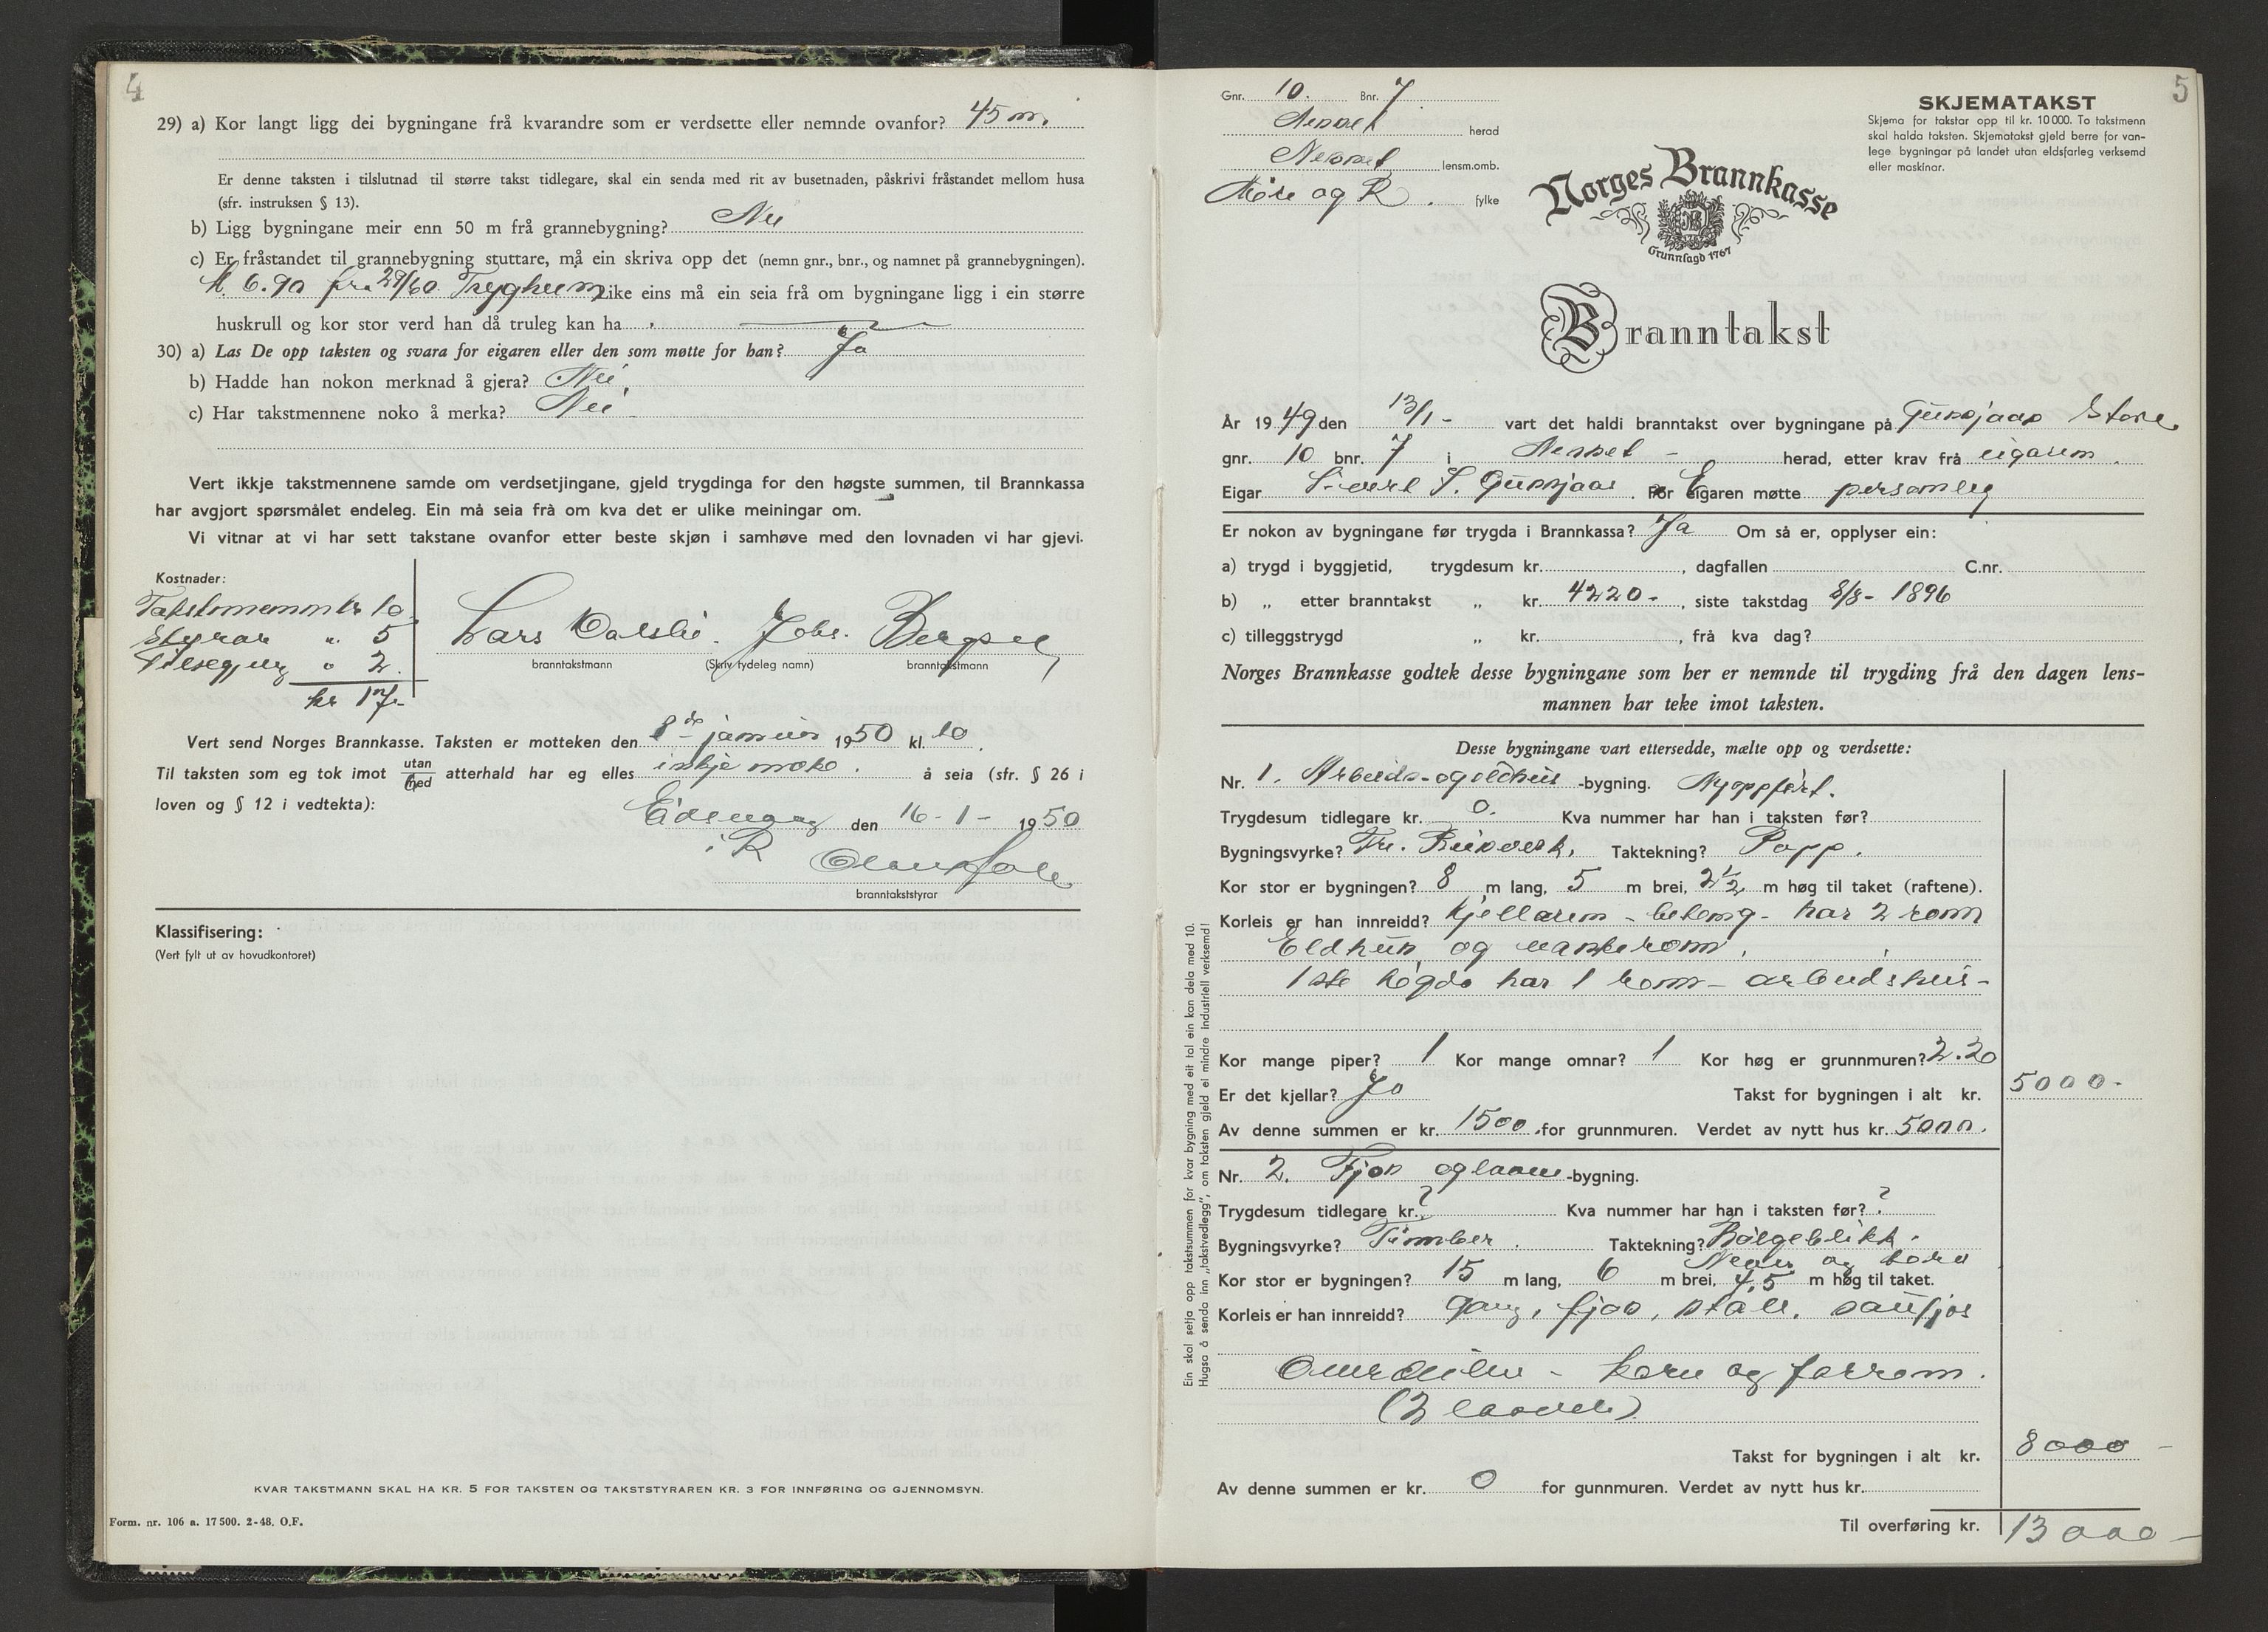 4
29) a) Kor langt ligg dei bygningane frå kvarandre som er verdsette eller nemnde ovanfor? 45 m.
Er denne taksten i tilslutnad til større takst tidlegare, skal ein senda med rit av busetnaden, påskrivi fråstandet mellom husa
(sfr. instruksen § 13).
b) Ligg bygningane meir enn 50 m frå grannebygning? Nei
c) Er fråstandet til grannebygning stuttare, må ein skriva opp det (nemn gnr., bnr., og namnet på grannebygningen).
M 6.90 fra 29/60 Trygheim Like eins må ein seia frå om bygningane ligg i ein større
huskrull og kor stor verd han då truleg kan ha
30) a) Las De opp taksten og svara for eigaren eller den som møtte for han? Ja
b) Hadde han nokon merknad å gjera? Nei.
c) Har takstmennene noko å merka? Nei
Vert ikkje takstmennene samde om verdsetjingane, gjeld trygdinga for den høgste summen, til Brannkassa
har avgjort spørsmålet endeleg. Ein må seia frà om kva det er ulike meiningar om.
Vi vitnar at vi har sett takstane ovanfor etter beste skjøn i samhøve med den lovnaden vi har gjevi.
Kostnader:
Takstmennene kr 10
Styrar " 5
" 2.
kr 17.-
Lars Dalsbø. Johs. Bergset
branntakstmann (Skriv tydeleg namn) branntakstmann
Vert send Norges Brannkasse. Taksten er motteken den 8de januar 1950 kl. 10.
Til taksten som eg tok imot utan/med atterhald har eg elles inkje noko. å seia (sfr. § 26 i
loven og § 12 i vedtekta):
Eidsvaag den 16-1- 1950
i R
branntakststyrar
Klassifisering:
(Vert fylt ut av hovudkontoret)
KVAR TAKSTMANN SKAL HA KR. 5 FOR TAKSTEN OG TAKSTSTYRAREN KR. 3 FOR INNFØRING OG GJENNOMSYN.
Form. nr. 106 a. 17 500. 2-48. O.F.
5
Gnr. 10. Bnr. 7
Nesset herad
Nesset lensm.omb.
Møre og R. fylke
SKJEMATAKST
Skjema for takstar opp til kr. 10 000. To takstmenn
skal halda taksten. Skjematakst gjeld berre for van-
lege bygningar på landet utan eldsfarleg verksemd
eller maskinar.
Norges Brannkasse
Grunnlagd 1767
Branntakst
År 1949 den 13/1- vart det haldi branntakst over bygningane på Gussjaas Store
gnr. 10 bnr. 7 i Nesset - herad, etter krav frå eigaren.
Eigar Sivert S. Gussjaas. For Eigaren møtte personleg
Er nokon av bygningane før trygda i Brannkassa? Ja Om så er, opplyser ein:
a) trygd i byggjetid, trygdesum kr. , dagfallen C.nr.
b) „ etter branntakst „ kr. 4220.- , siste takstdag 8/8- 1896
c) tilleggstrygd „ kr. , frå kva dag?
Norges Brannkasse godtek desse bygningane som her er nemnde til trygding frå den dagen lens-
mannen har teke imot taksten.
Desse bygningane vart ettersedde, mælte opp og verdsette:
Nr. 1. Arbeids- og eldhus -bygning. Nyoppført.
Trygdesum tidlegare kr. 0. Kva nummer har han i taksten før?
Bygningsvyrke? Tre. Reisverk. Taktekning? Papp.
Kor stor er bygningen? 8 m lang, 5 m brei, 2½ m høg til taket (raftene).
Korleis er han innreidd? Kjellaren - betong - har 2 romm
Eldhus og vaskeromm.
1ste høgda har 1 romm - arbeidshus-
Kor mange piper? 1 Kor mange omnar? 1 Kor høg er grunnmuren? 2.20
Er det kjellar? Ja Takst for bygningen i alt kr. 5000.-
Av denne summen er kr. 1500. for grunnmuren. Verdet av nytt hus kr. 5000.
Nr. 2. Fjøs og laave -bygning.
Trygdesum tidlegare kr. ? Kva nummer har han i taksten før? ?
Bygningsvyrke? Tømmber. Taktekning? Bølgeblikk.
Neon og bord
Kor stor er bygningen? 15 m lang, 6 m brei, 4,5 m høg til taket.
Korleis er han innreidd? Gang, fjøs, stall, saufjøs
Overdelen - korn og forrom.
(2 laaver)
Takst for bygningen i alt kr. 8000 -
Av denne summen er kr. 0 for gunnmuren. Verdet av nytt hus kr.
Til overføring kr. 13 000 -
Ein skal setja opp takstsummen for kvar bygning med eit tal ein kan dela med 10.
Hugsa å senda inn „takstvedlegg", om taksten gjeld ei mindre industriell verksemd!